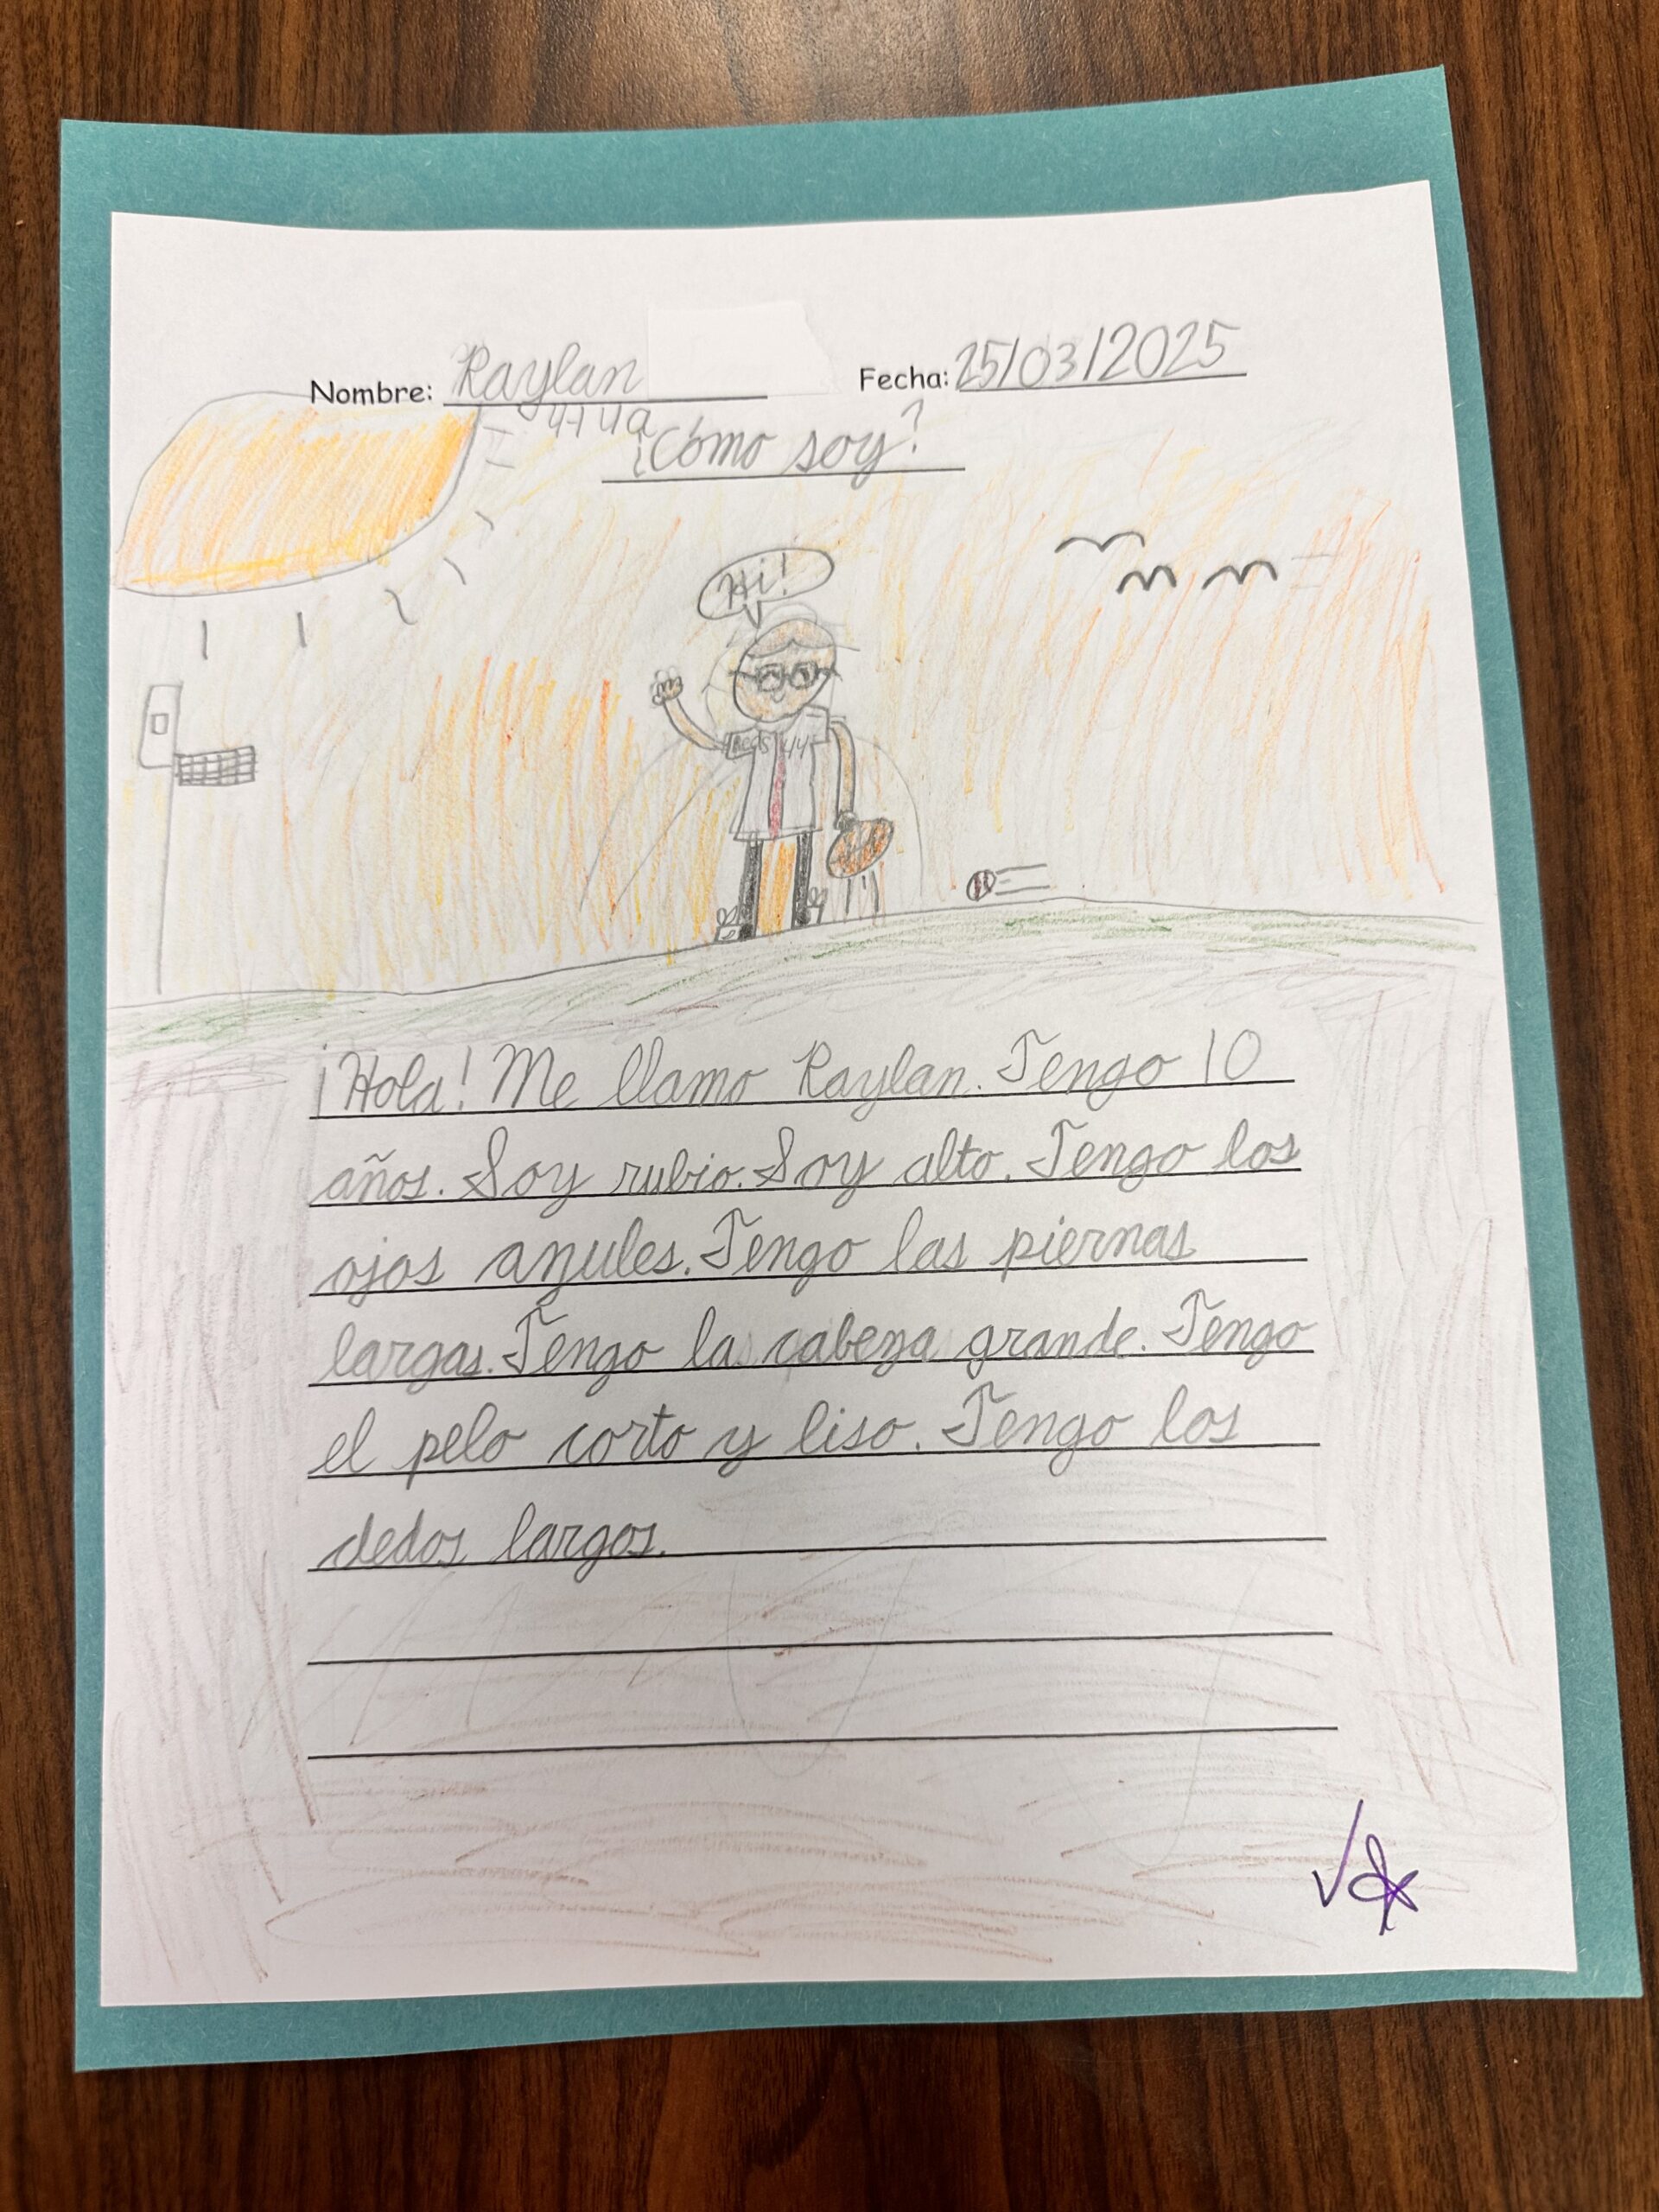 Nombre: Raylan Fecha: 25/03/2025
¿Cómo soy?
Hi!
Reds 44
¡Hola! Me llamo Raylan. Tengo 10
años. Soy rubio. Soy alto. Tengo los
ojos azules. Tengo las piernas
largas. Tengo la cabeza grande. Tengo
el pelo corto y liso. Tengo los
dedos largos.